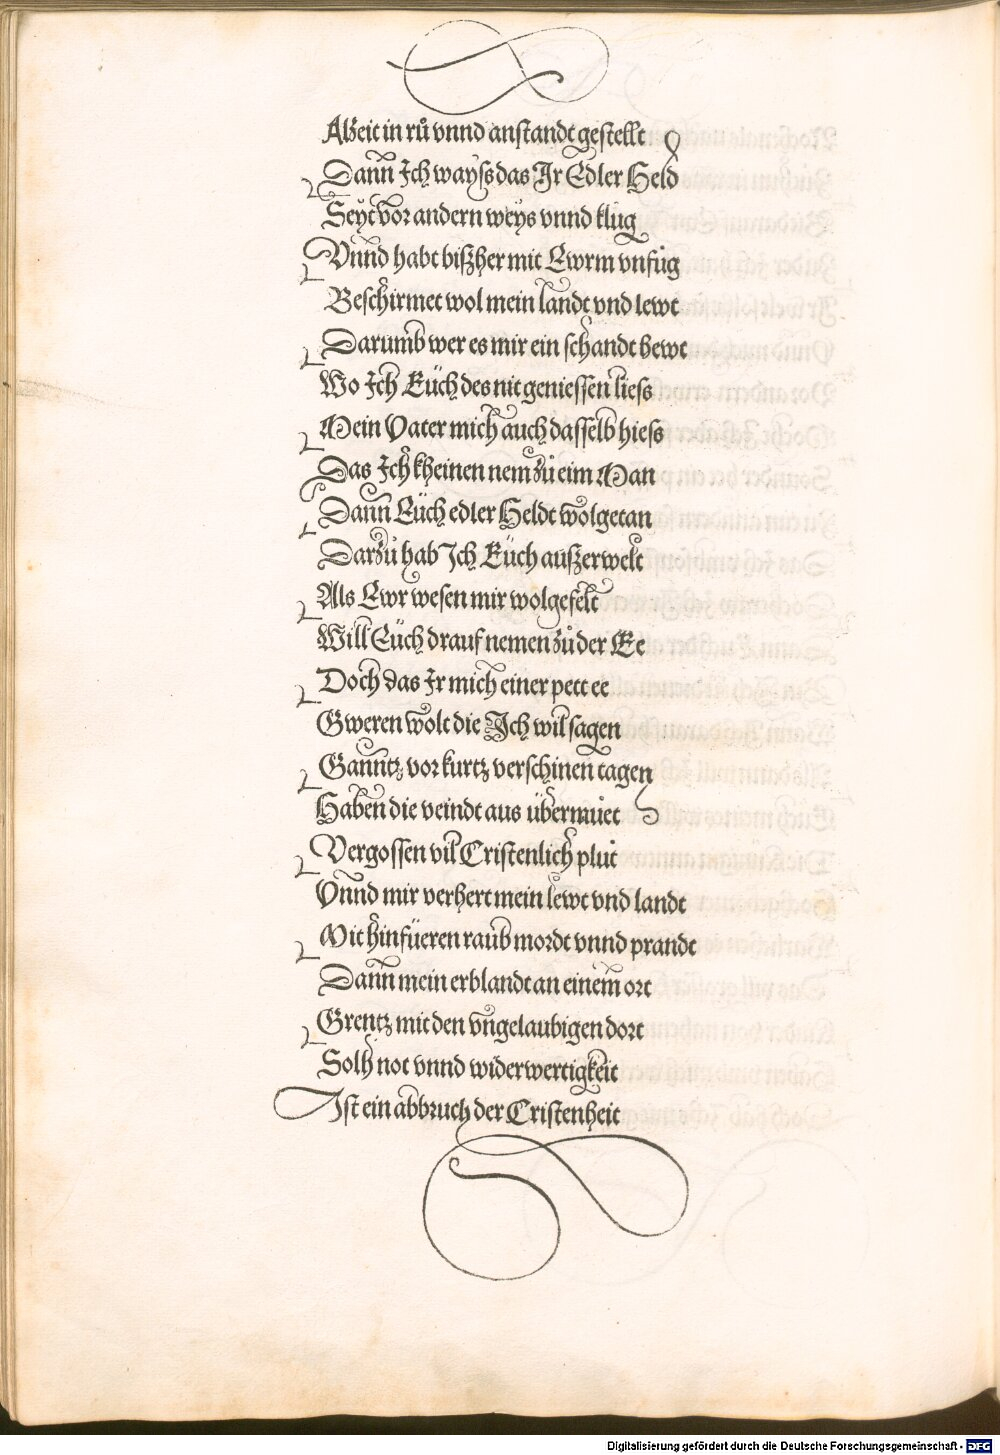 Alzeit in rů vnnd anstandt gestellt
Dann Ich wayſs das Ir Edler Held
Seyt vor andern weys vnnd klůg
Vnnd habt biſzher mit Ewrm vnfůg
Beschirmet wol mein landt vnd lewt
Darumb wer es mir ein schandt hewt
Wo Ich Eüch des nit geniessen lieſs
Mein Vater mich auch dasselb hieſs
Das Ich kheinen nem zů eim Man
Dann Eüch edler Heldt wolgetan
Darzů hab Ich Eüch auſzerwelt
Als Ewr wesen mir wolgefelt
Will Eüch drauf nemen zů der Ee
Doch das Ir mich einer pett ee
Gweren wolt die Ich wil sagen
Ganntz vor kurtz verschinen tagen
Haben die veindt aus übermüet
Vergossen vil Cristenlich plüt
Vnnd mir verhert mein lewt vnd landt
Mit hinfüeren raub mordt vnnd prandt
Dann mein erblandt an einem ort
Grentz mit den vngelaubigen dort
Solh not vnnd widerwertigkeit
Ist ein abbruch der Cristenheit
Digitalisierung gefördert durch die Deutsche Forschungsgemeinschaft - DFG